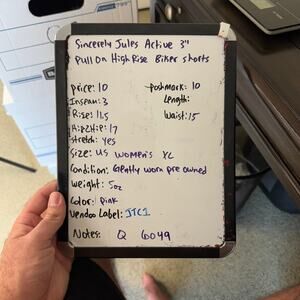 Sincerely Jules Active 3"
Pull On High Rise Biker shorts
price: 10 poshmark: 10
Inseam: 3 Length:
Rise: 11.5 Waist: 15
Hip2Hip: 17
Stretch: yes
Size: US Women's XL
Condition: Gently worn pre owned
Weight: 5oz
Color: Pink
Vendoo Label: JTC1
Notes: Q 6049